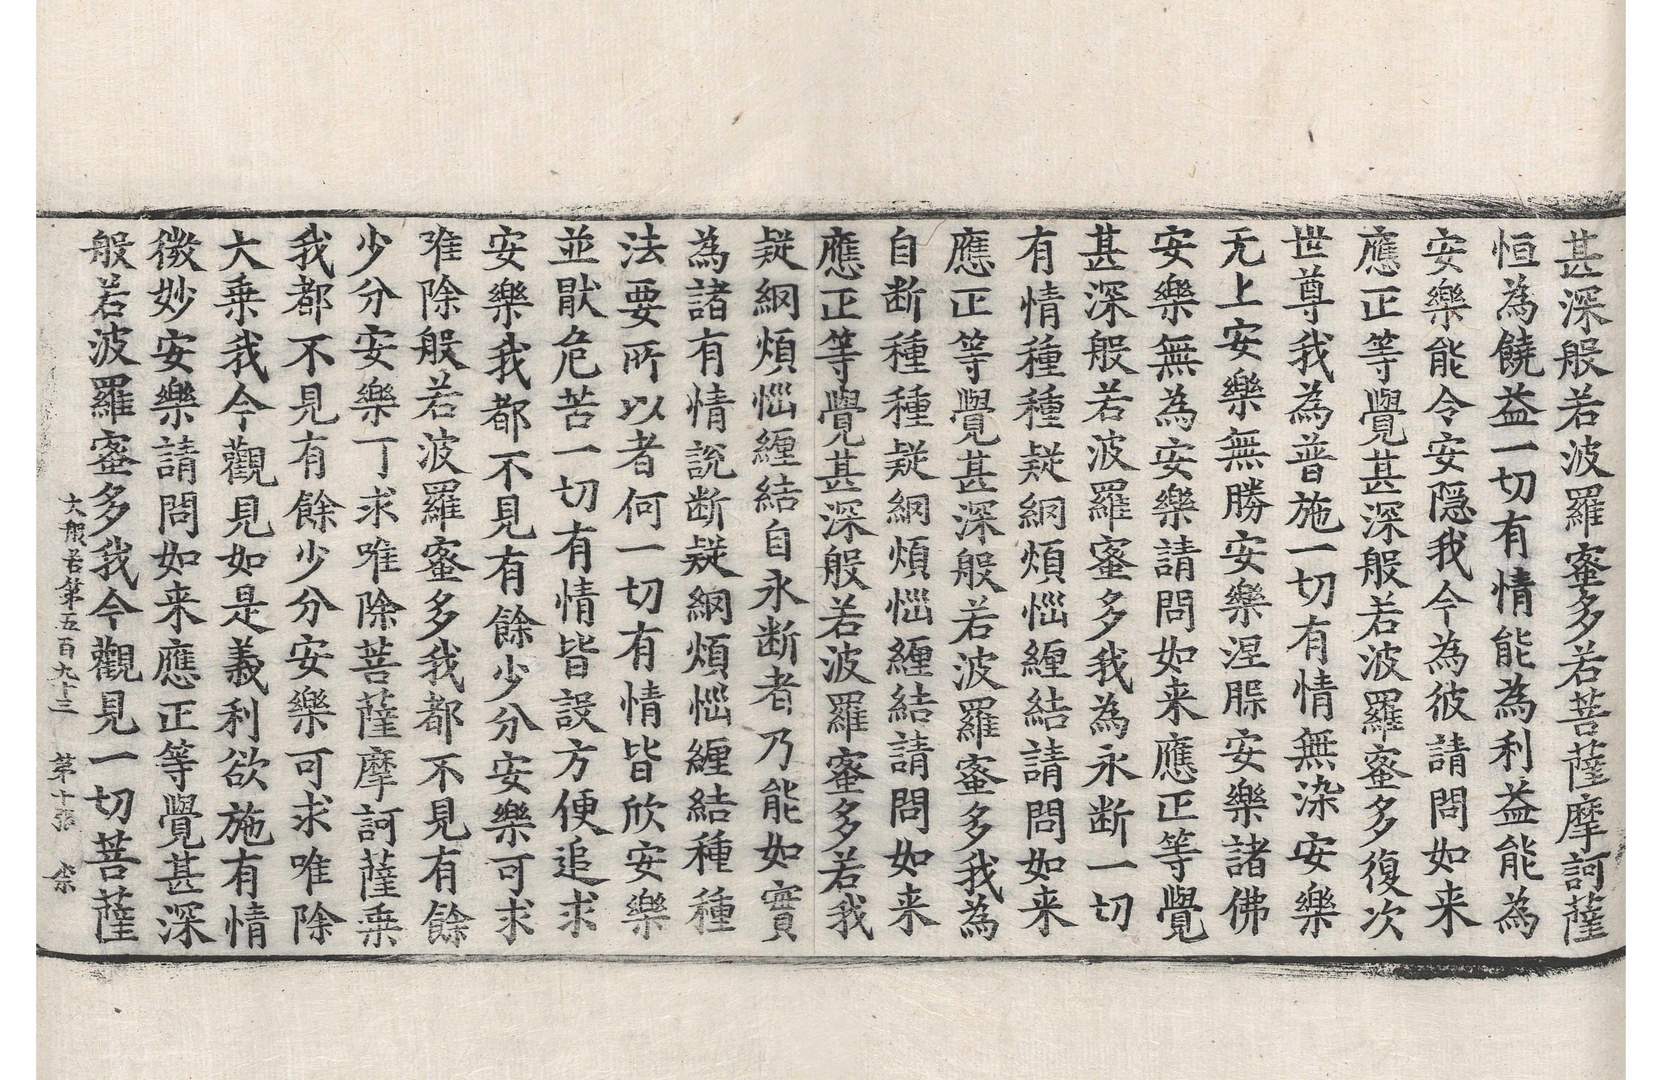 甚深般若波羅蜜多若菩薩摩訶薩
恒為饒益一切有情能為利益能為
安樂能令安隱我今為彼請問如来
應正等覺甚深般若波羅蜜多復次
世尊我為普施一切有情無染安樂
无上安樂無勝安樂涅脲安樂諸佛
安樂無為安樂請問如来應正等覺
甚深般若波羅蜜多我為永断一切
有情種種疑網煩惱纏結請問如来
應正等覺甚深般若波羅蜜多我為
自断種種疑網煩惱纏結請問如来
應正等覺甚深般若波羅蜜多若我
疑網煩惱纏結自永断者乃能如實
為諸有情說断疑網煩惱纏結種種
法要所以者何一切有情皆欣安樂
並猒危苦一切有情皆設方便追求
安樂我都不見有餘少分安樂可求
唯除般若波羅蜜多我都不見有餘
少分安樂可求唯除菩薩摩訶薩乗
我都不見有餘少分安樂可求唯除
大乗我今觀見如是義利欲施有情
微妙安樂請問如来應正等覺甚深
般若波羅蜜多我今觀見一切菩薩
大般若第五百九十三 第十張 柰